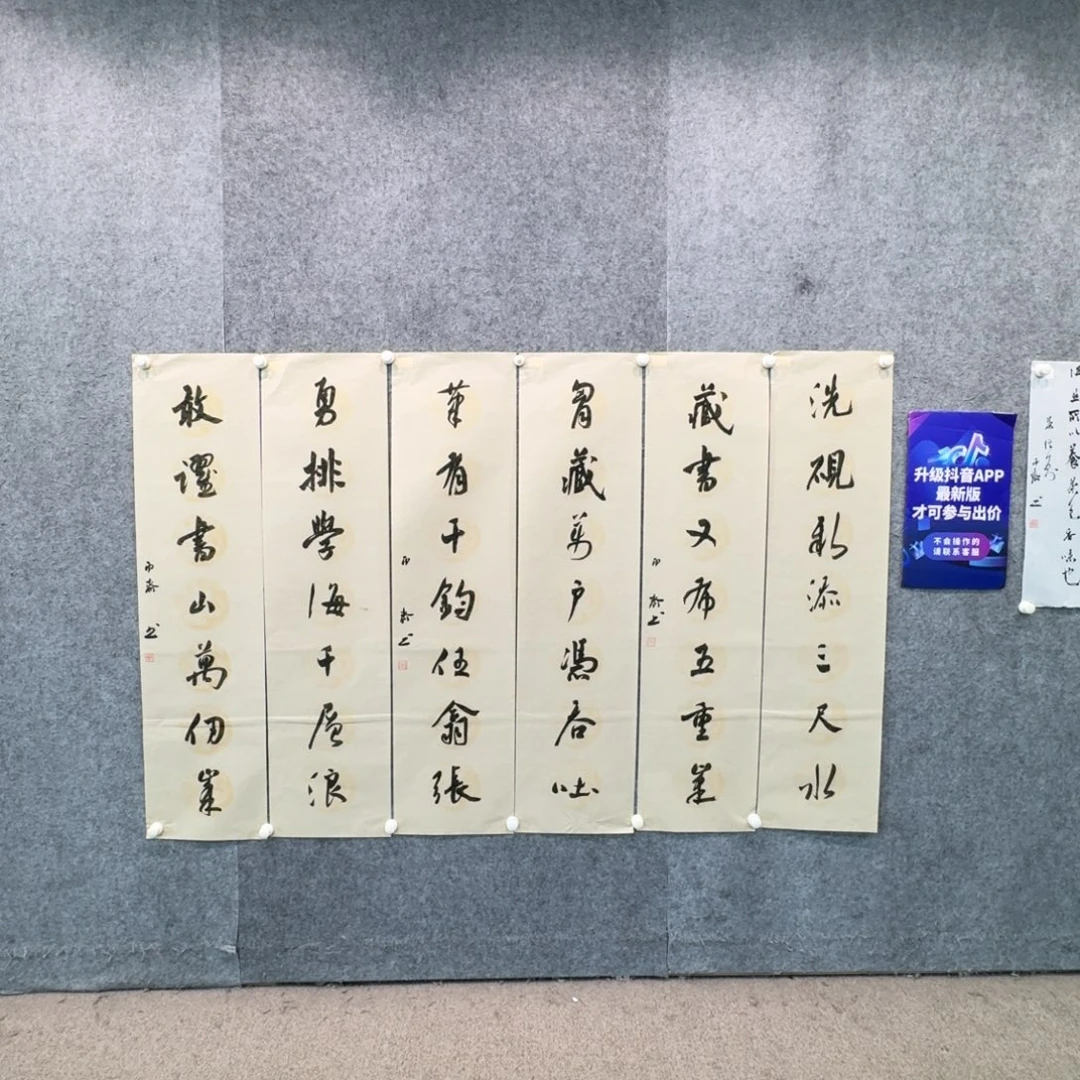 洗硯新添三尺水
藏書又布五重
胷藏萬戶憑吞吐
筆有千鈞任翕張
勇排學海千層浪
敢躍書山萬仞峯
升级抖音APP
最新版
才可参与出价
不会操作的
请联系客服